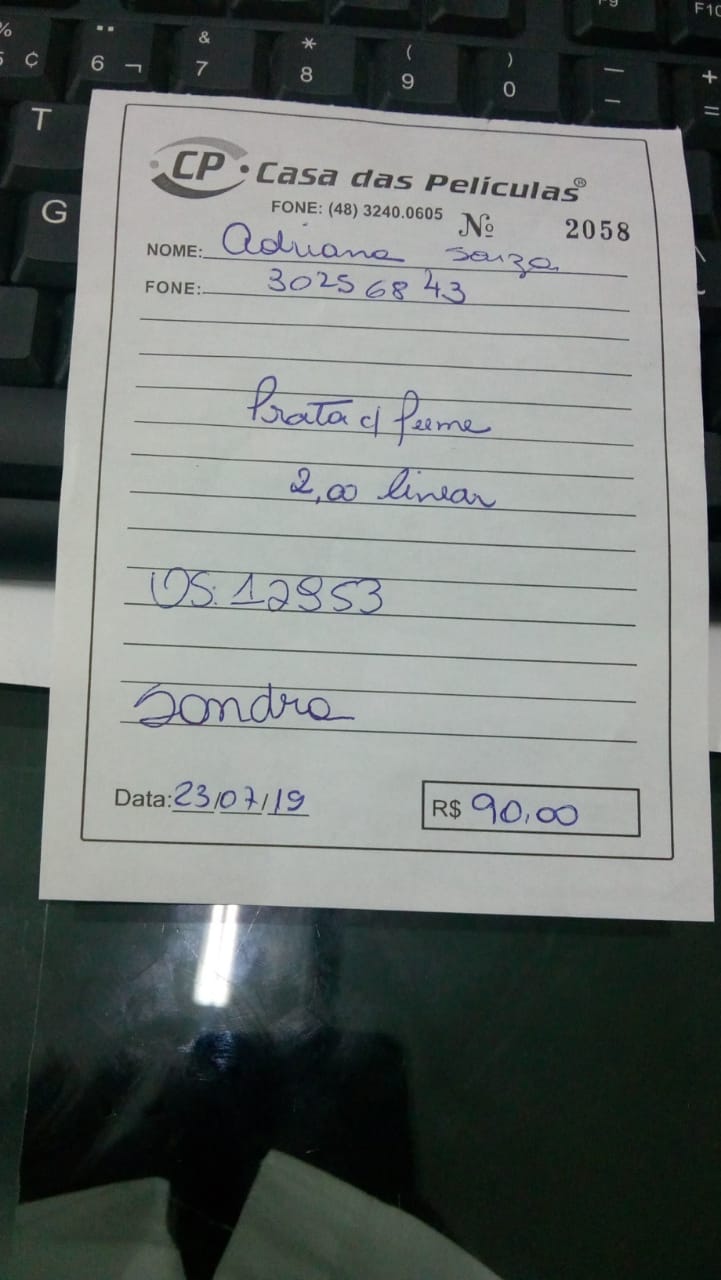 % & * ( ) — F9 F10
5 ¢ 6 ¬ 7 8 9 0 — + =
T
G
CP • Casa das Películas®
FONE: (48) 3240.0605 Nº 2058
NOME: Adriana
FONE: 30256843
Prata c/ fume
2,00 linear
OS: 12953
Sandra
Data: 23/07/19 R$ 90,00